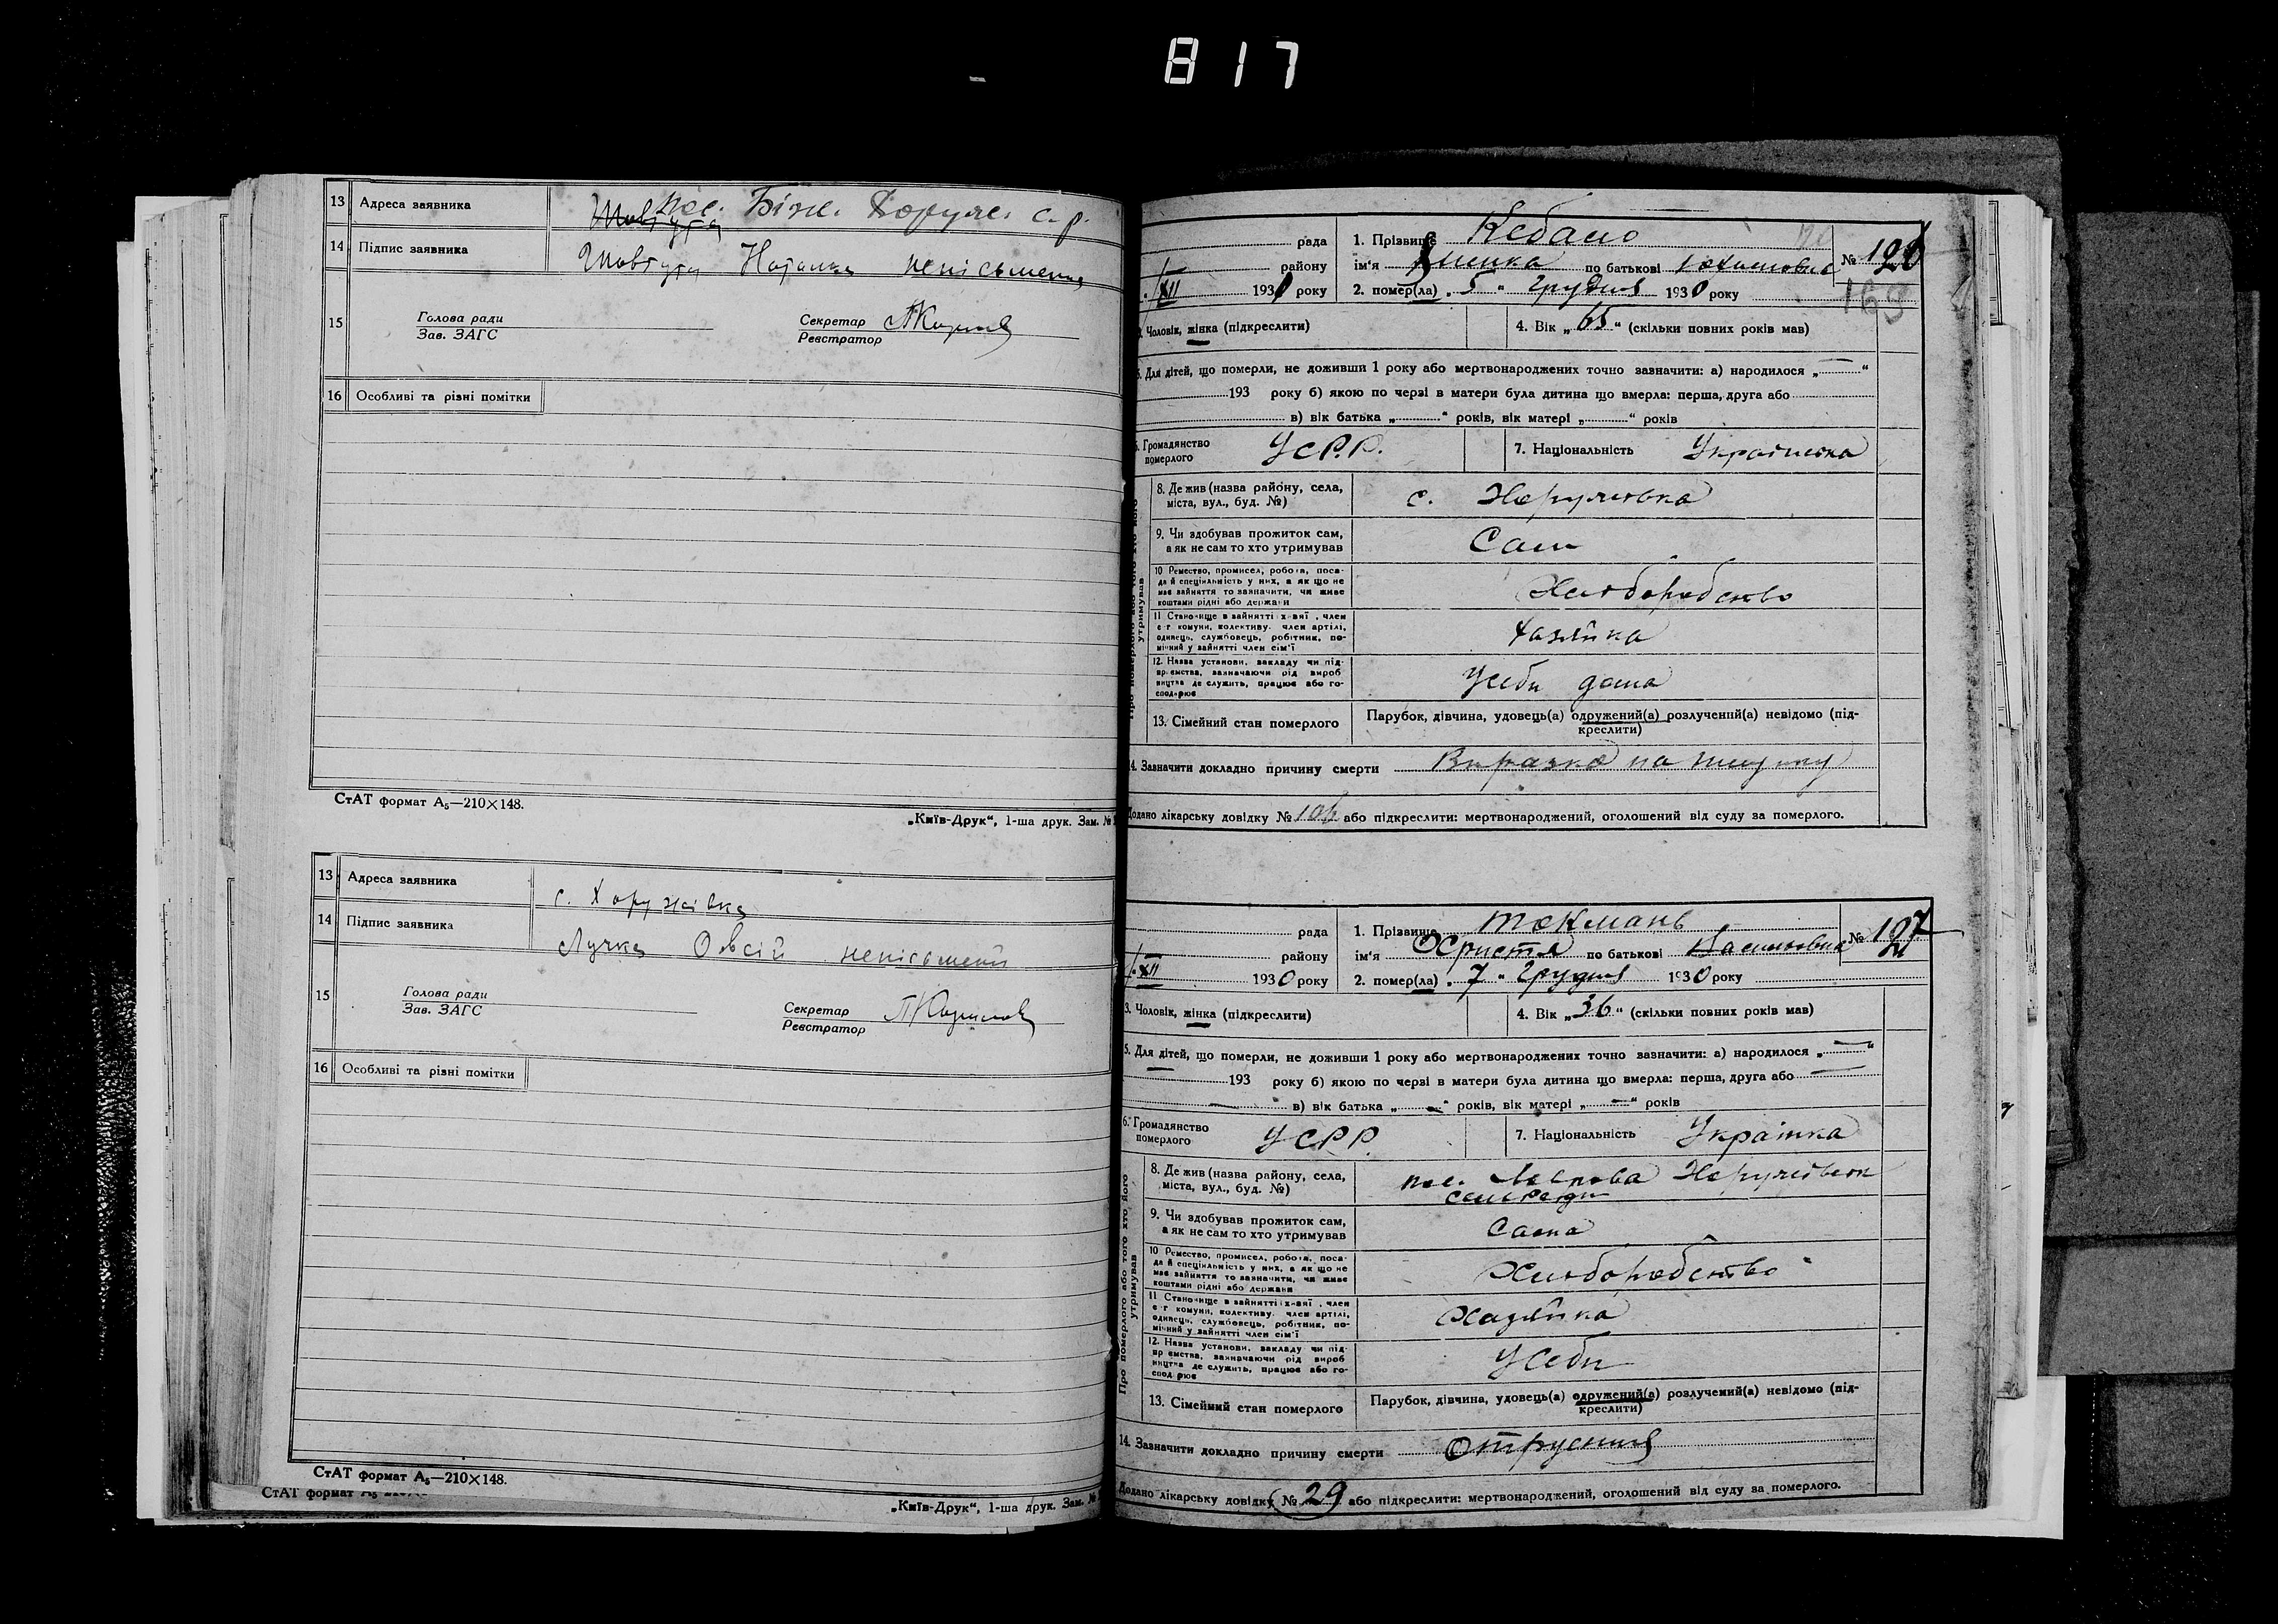 817
13 Адреса заявника пос. Біж. Хоруж. с.р.
14 Підпис заявника Шовгута Наталка неписьменна
15 Голова ради
Зав. ЗАГС
Секретар
Реєстратор
16 Особливі та різні помітки
СтАТ формат А5—210×148.
„Київ-Друк“, 1-ша друк. Зам. №
13 Адреса заявника с. Хоружівка
14 Підпис заявника Лучка Овсій неписьмений
15 Голова ради
Зав. ЗАГС
Секретар
Реєстратор
16 Особливі та різні помітки
СтАТ формат А5—210×148.
СтАТ формат А5
„Київ-Друк“, 1-ша друк. Зам. №
рада 1. Прізвище № 126
району ім‘я по батькові Юхимовна
XII 1930 року 2. помер(ла) „5“ Грудня 1930 року
163
Чоловік, жінка (підкреслити) 4. Вік „65“ (скільки повних років мав)
5. Для дітей, що померли, не доживши 1 року або мертвонароджених точно зазначити: а) народилося „—“
193 року б) якою по черзі в матери була дитина що вмерла: перша, друга або
в) вік батька „ “ років, вік матері „ “ років
6. Громадянство
померлого УСРР. 7. Національність Українка
8. Де жив (назва району, села,
міста, вул., буд. №) с. Хоружівка
9. Чи здобував прожиток сам,
а як не сам то хто утримував Сам
10 Ремество, промисел, робота, поса-
да й спеціяльність у них, а як що не
має зайняття то зазначити, чи живе
коштами рідні або держави Хліборобство
11 Становище в зайнятті: х-вяї, член
с-г комуни, колективу, член артілі,
одинець, службовець, робітник, по-
мічний у зайнятті член сім‘ї Хазяйка
12. Назва установи, закладу чи під-
приємства, зазначаючи рід вироб
ництва де служить, працює або го-
сподарює У себе дома
13. Сімейний стан померлого Парубок, дівчина, удовець(а) одружений(а) розлучений(а) невідомо (під-
креслити)
14. Зазначити докладно причину смерти Виразка на шлунку
Додано лікарську довідку № 106 або підкреслити: мертвонароджений, оголошений від суду за померлого.
Про померлого або того хто його утримував
рада 1. Прізвище Токмань № 127
району ім‘я Христя по батькові Василовна
XII 1930 року 2. помер(ла) „7“ Грудня 1930 року
3. Чоловік, жінка (підкреслити) 4. Вік „36“ (скільки повних років мав)
5. Для дітей, що померли, не доживши 1 року або мертвонароджених точно зазначити: а) народилося „—“
193 року б) якою по черзі в матери була дитина що вмерла: перша, друга або —
в) вік батька „—“ років, вік матері „—“ років
6. Громадянство
померлого УСРР. 7. Національність Українка
8. Де жив (назва району, села,
міста, вул., буд. №) пос. Хоружівськ
сельради
9. Чи здобував прожиток сам,
а як не сам то хто утримував Сама
10 Ремество, промисел, робота, поса-
да й спеціяльність у них, а як що не
має зайняття то зазначити, чи живе
коштами рідні або держави Хліборобство
11 Становище в зайнятті: х-вяї, член
с-г комуни, колективу, член артілі,
одинець, службовець, робітник, по-
мічний у зайнятті член сім‘ї Хазяйка
12. Назва установи, закладу чи під-
приємства, зазначаючи рід вироб
ництва де служить, працює або го-
сподарює У себе
13. Сімейний стан померлого Парубок, дівчина, удовець(а) одружений(а) розлучений(а) невідомо (під-
креслити)
14. Зазначити докладно причину смерти Отруєння
Додано лікарську довідку № 29 або підкреслити: мертвонароджений, оголошений від суду за померлого.
Про померлого або того хто його утримував